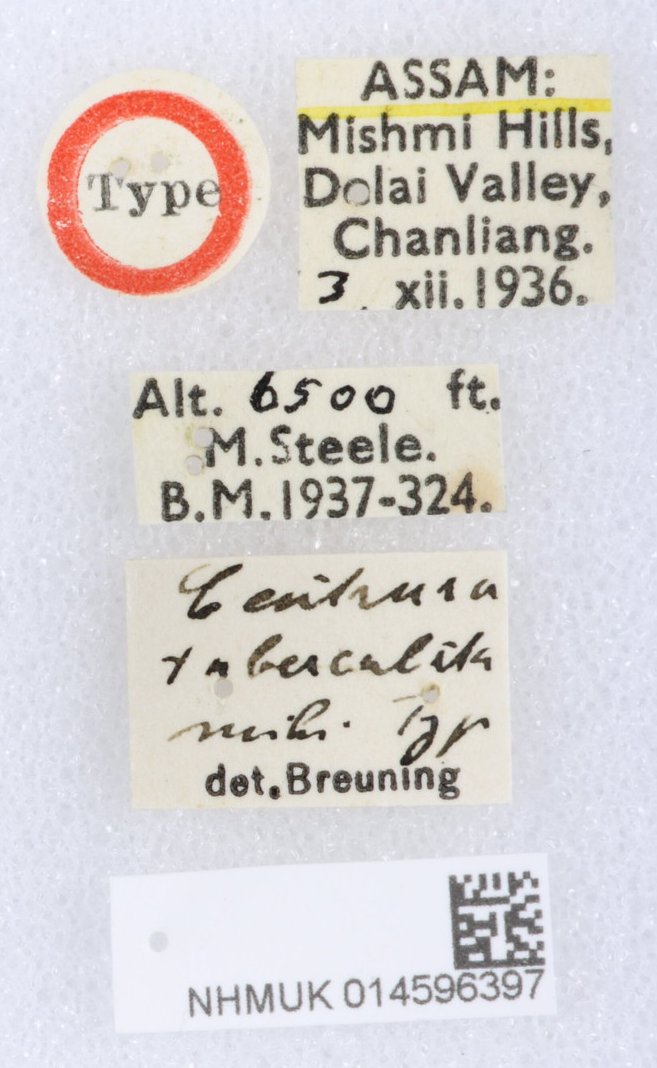 Type
ASSAM:
Mishmi Hills,
Delai Valley,
Chanliang.
3. xii.1936.
Alt. 6500 ft.
M.Steele.
B.M.1937-324.
tuberculata
mihi. Typ
det.Breuning
NHMUK 014596397